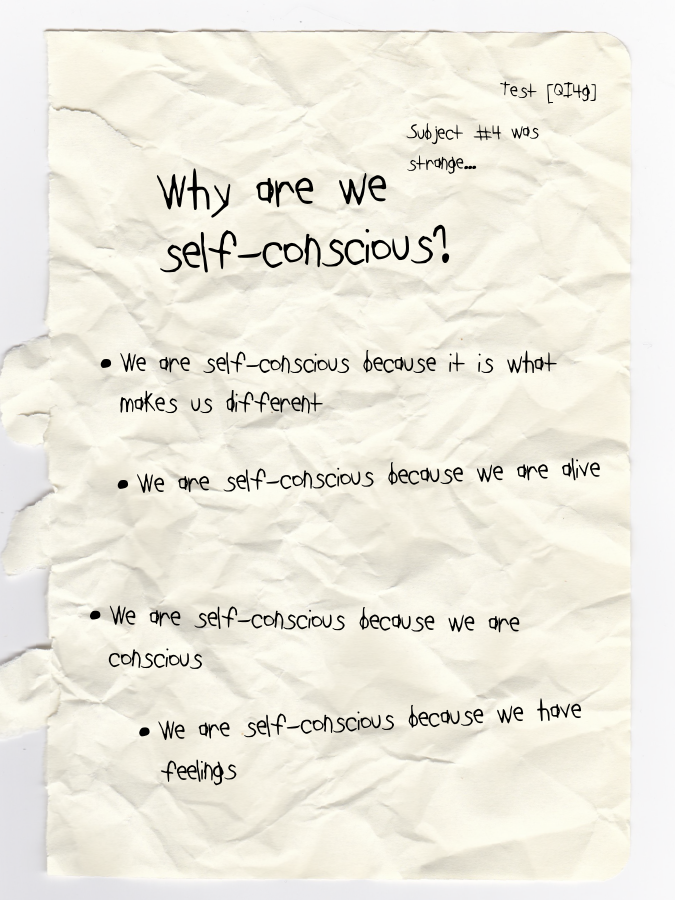 Test [QI4g]
Subject #4 was
strange...
Why are we
self-conscious?
• We are self-conscious because it is what
makes us different
• We are self-conscious because we are alive
• We are self-conscious because we are
conscious
• We are self-conscious because we have
feelings